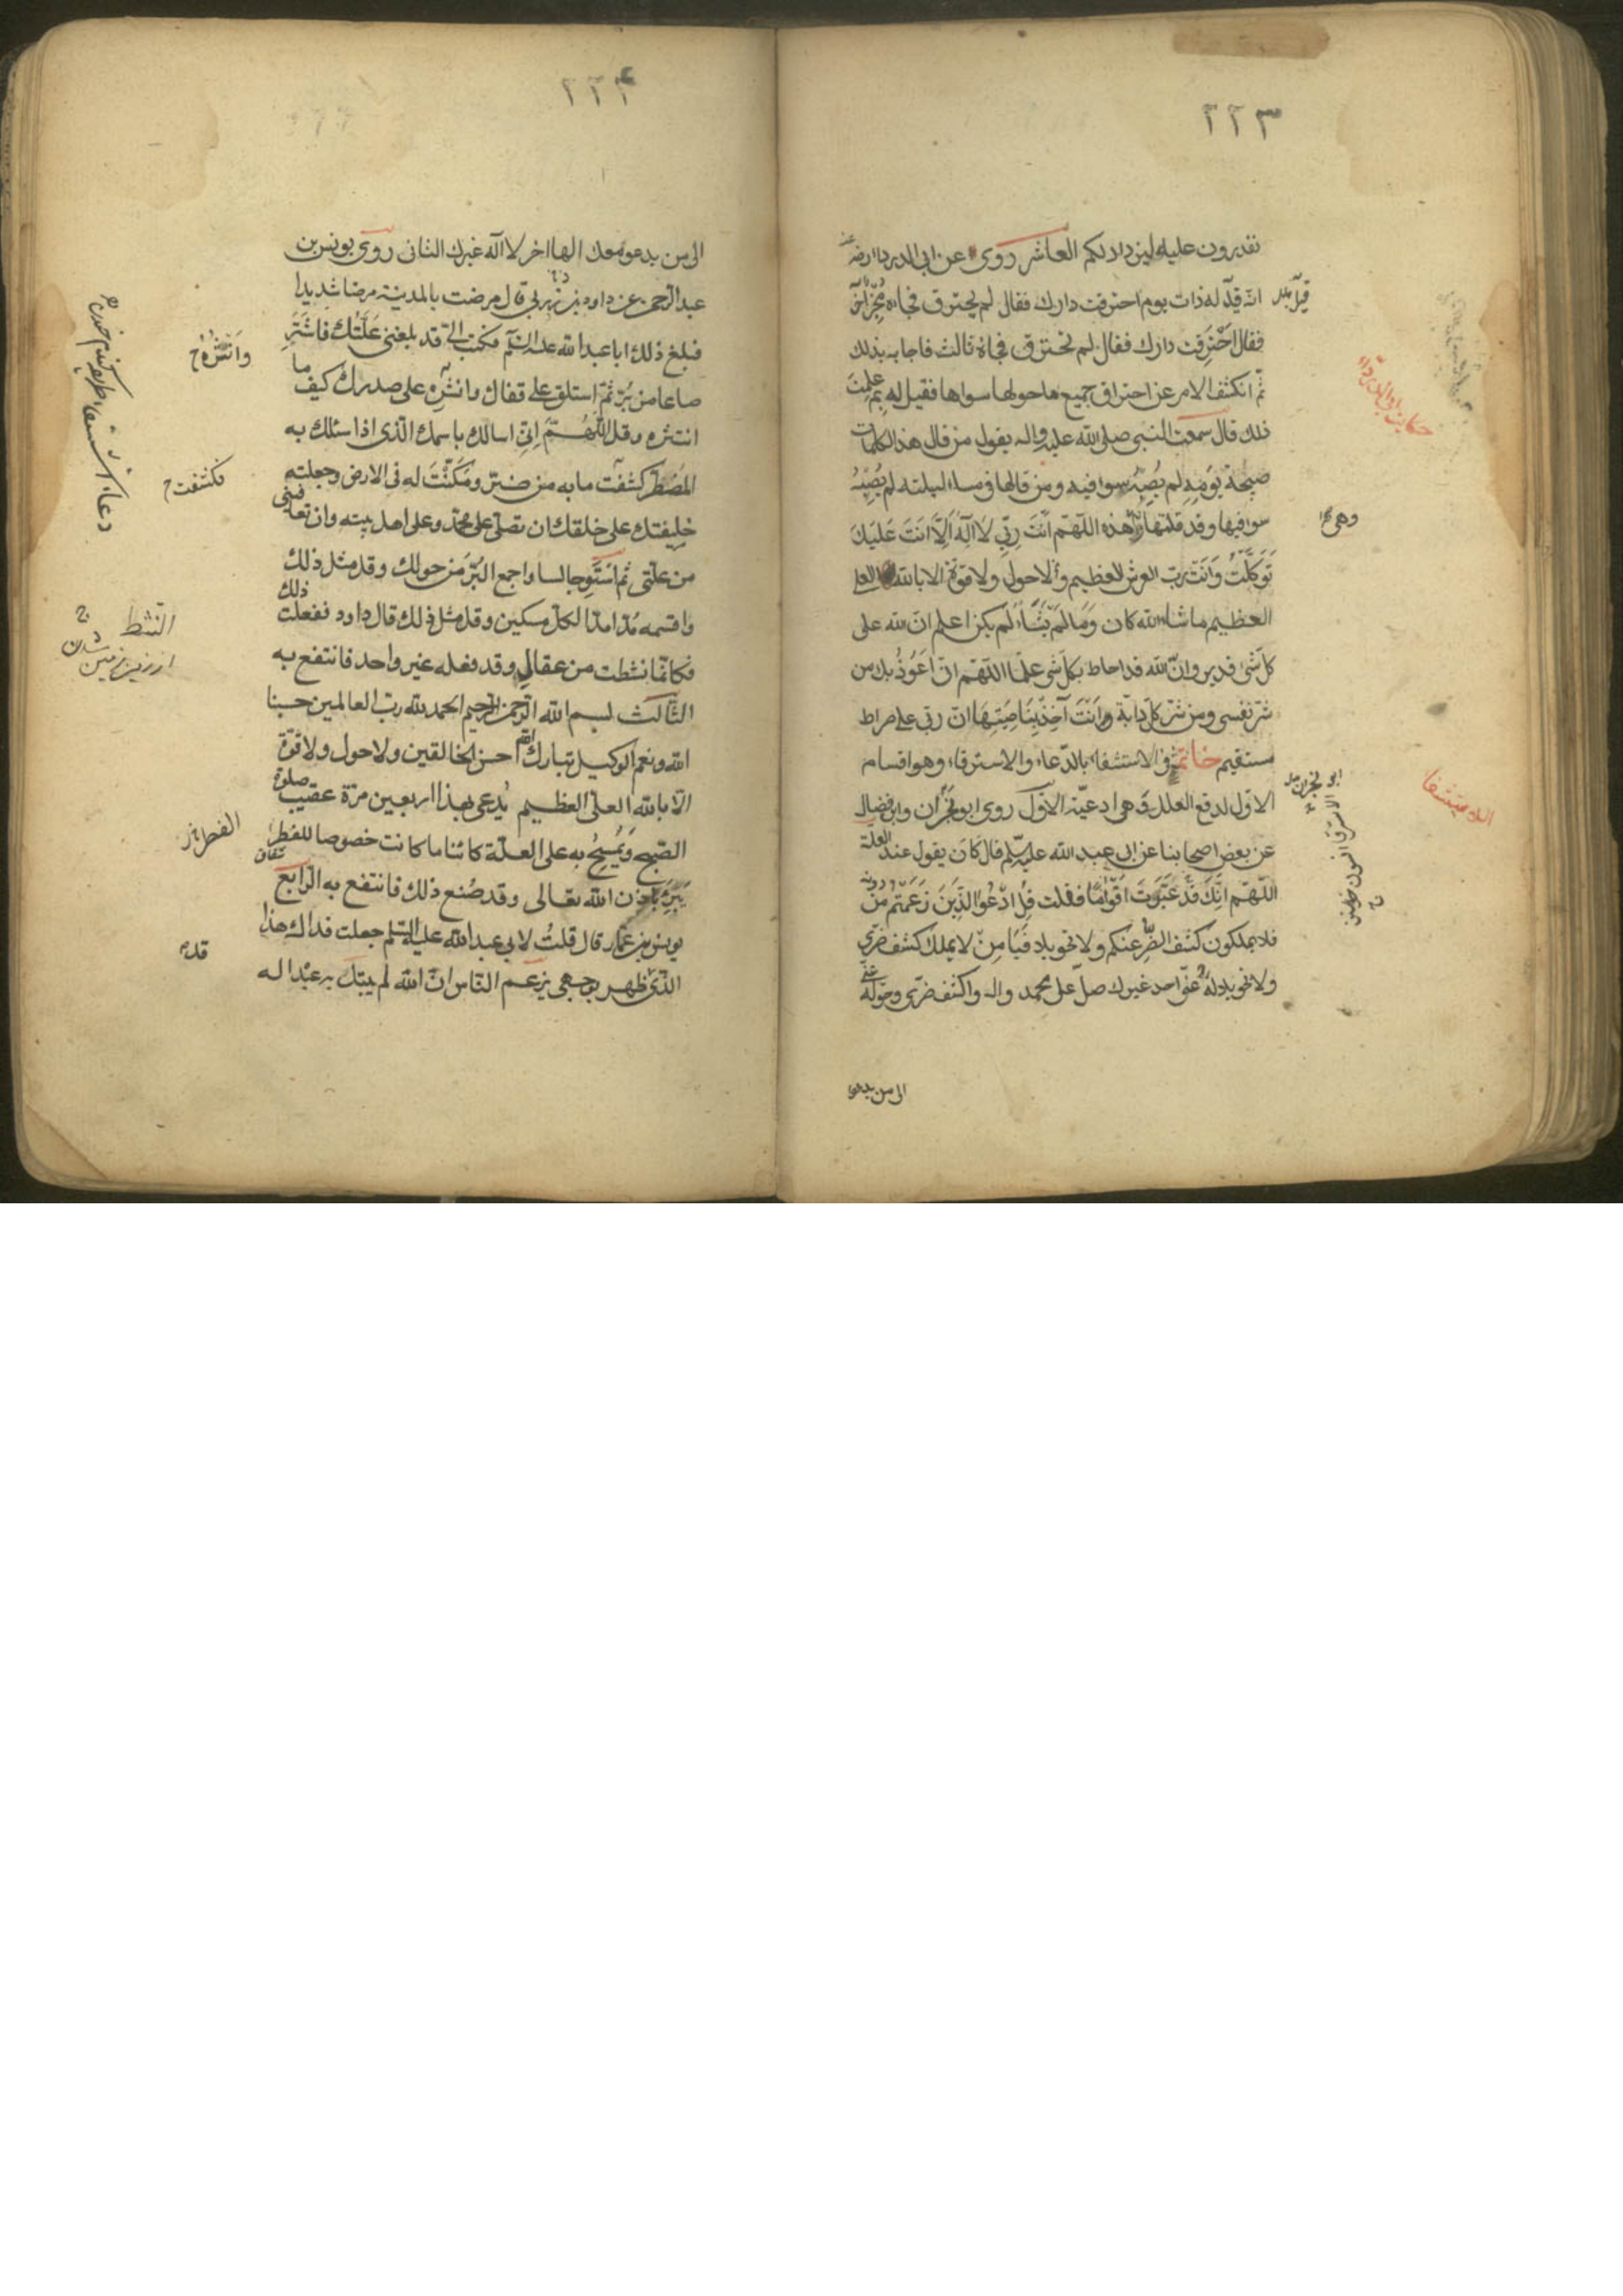 ٢٢٣
تقدرون عليه لين دلالكم العاشر روى عن ابى الدرداء رضه
انه قيل له ذات يوم احترقت دارك فقال لم يحترق فجاءه مخبر آخر
فقال احترقت دارك فقال لم تحترق فجاءه ثالث فاجابه بذلك
ثم انكشف الامر عن احتراق جميع ما حولها سواها فقيل له بم علمت
ذلك قال سمعت النبى صلى الله عليه واله يقول من قال هذه الكلمات
صبيحة يومه لم يصبه سوء فيه ومن قالها فى مساء ليلته لم يصبه
سوء فيها وقد قلتها وهذه اللهم انت ربى لا اله الا انت عليك
توكلت وانت رب العرش العظيم ولا حول ولا قوة الا بالله العلى
العظيم ما شاء الله كان وما لم يشاء لم يكن اعلم ان الله على
كل شى قدير وان الله قد احاط بكل شى علما اللهم انى اعوذ بك من
شر نفسى ومن شر كل دابة وانت آخذ بناصيتها ان ربى على صراط
مستقيم خاتمة فى الاستشفاء بالدعاء والاسترقاء وهو اقسام
الاول لدفع العلل وهى ادعية الاول روى ابو نجران وابن فضال
عن بعض اصحابنا عن ابى عبد الله عليه السلم قال كان يقول عند العلة
اللهم انك قد عيرت اقواما فقلت قل ادعوا الذين زعمتم من دونه
فلا يملكون كشف الضر عنكم ولا تحويلا فيا من لا يملك كشف ضرى
ولا تحويله عنى احد غيرك صل على محمد واله واكشف ضرى وحوله عنى
الى من يدعو
قيل
وهى
ابو نجران
حكايت ابو الدرداء
٢٢۴
الى من يدعو معك الها اخر لا اله غيرك الثانى روى يونس بن
عبد الرحمن عن داود بن زربى قال مرضت بالمدينة مرضا شديدا
فبلغ ذلك ابا عبد الله عليه السلم فكتب الى قد بلغنى علتك فاشتر
صاعا من بر ثم استلق على قفاك وانثره على صدرك كيف ما
انتثره وقل اللهم انى اسالك باسمك الذى اذا سئلك به
المضطر كشفت ما به من ضر ومكنت له فى الارض وجعلته
خليفتك على خلقك ان تصلى على محمد وعلى اهل بيته وان تعافينى
من علتى ثم استو جالسا واجمع البر من حولك وقل مثل ذلك
واقسمه مدا مدا لكل مسكين وقل مثل ذلك قال داود ففعلت ذلك
فكانما نشطت من عقال وقد فعله غير واحد فانتفع به
الثالث بسم الله الرحمن الرحيم الحمد لله رب العالمين حسبنا
الله ونعم الوكيل تبارك الله احسن الخالقين ولا حول ولا قوة
الا بالله العلى العظيم يدعى بهذا اربعين مرة عقيب صلوة
الصبح ويمسح به على العلة كائنا ما كانت خصوصا للفطر
يبرء باذن الله تعالى وقد صنع ذلك فانتفع به الرابع
يونس بن عمار قال قلت لابى عبد الله عليه السلم جعلت فداك هذا
الذى ظهر بوجهى يزعم الناس ان الله لم يبتل به عبدا له
وانثره
فكشفت
النشط
قد